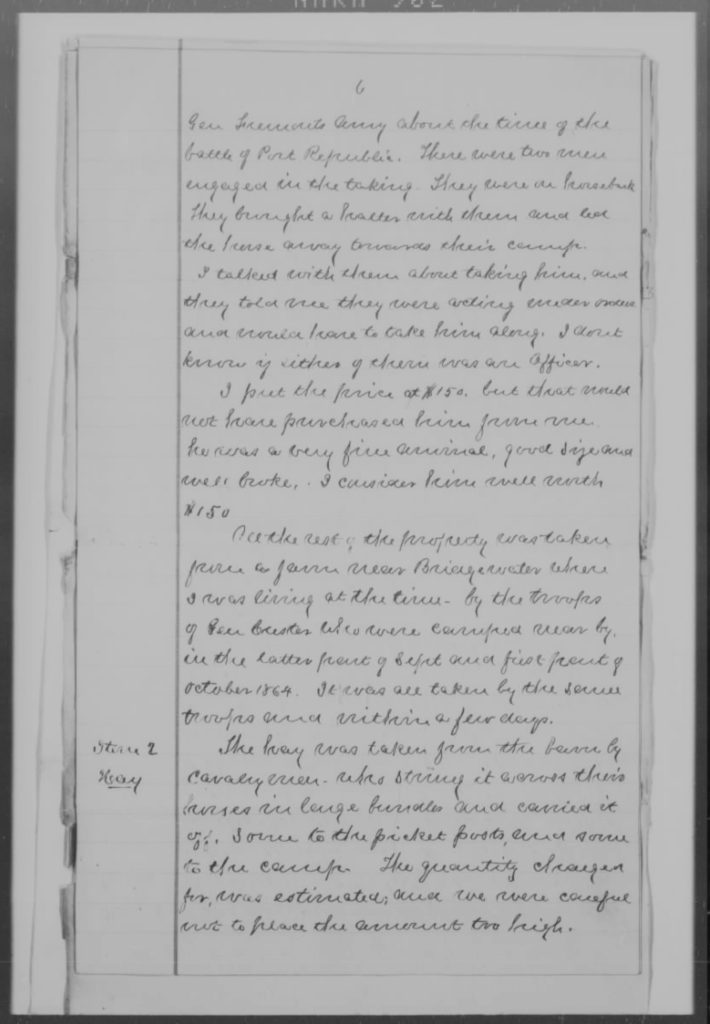 6
Gen Fremonts Army about the time of the
battle of Port Republic. There were two men
engaged in the taking. They were on horseback
They brought a halter with them and led
the horse away towards their camp.
I talked with them about taking him, and
they told me they were acting under orders
and would have to take him along. I dont
know if either of them was an Officer.
I put the price at $150. but that would
not have purchased him from me.
he was a very fine animal, good size and
well broke, . I consider him well worth
$150
All the rest of the property was taken
from a farm near Bridgewater where
I was living at the time - by the troops
of Gen Custer who were camped near by,
in the latter part of Sept and first part of
October 1864. It was all taken by the same
troops and within a few days.
Item 2
Hay
The hay was taken from the barn by
cavalrymen - who strung it across their
horses in large bundles and carried it
off. Some to the picket posts, and some
to the camp. The quantity charged
for, was estimated; and we were careful
not to place the amount too high.